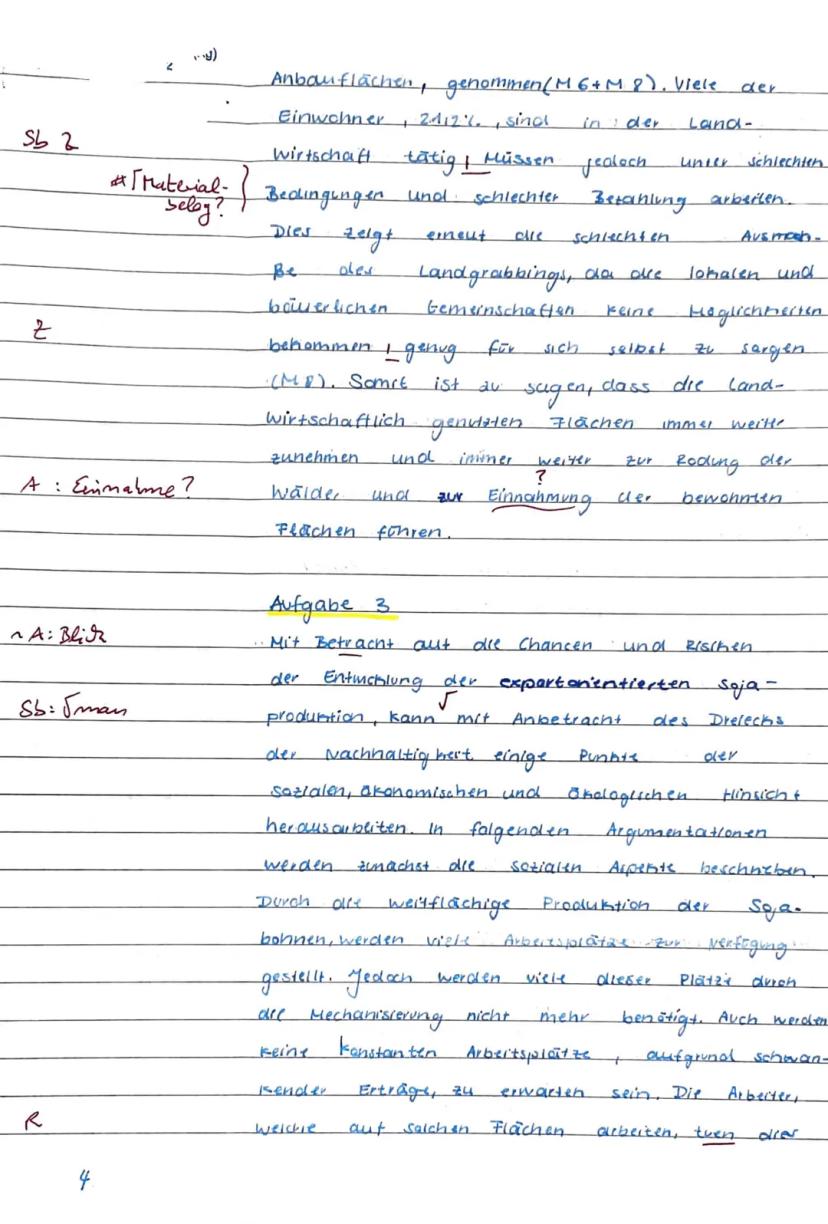 Anbauflächen, genommen (M6+M8). Viele der
Einwohner, 21,2%, sind in der Land-
Sb Z
wirtschaft tätig, Müssen jedoch unter schlechten
# Γ Material-
beleg?
Bedingungen und schlechter Bezahlung arbeiten.
Dies zeigt erneut die schlechten Ausmah-
ße des Landgrabbings, da die lokalen und
bäuerlichen Gemeinschaften keine Möglichkeiten
Z
bekommen, genug für sich selbst zu sorgen
(M8). Somit ist zu sagen, dass die Land-
wirtschaftlich genutzten Flächen immer weiter
zunehmen und immer weiter zur Rodung der
?
A: Einnahme?
Wälder und zur Einnahmung der bewohnten
Flächen führen.
Aufgabe 3
~A: Blick
Mit Betracht auf die Chancen und Risiken
der Entwicklung der exportorientierten Soja-
Sb: Γman
produktion, kann Γ mit Anbetracht des Dreiecks
der Nachhaltigkeit einige Punkte der
sozialen, ökonomischen und ökologischen Hinsicht
herausarbeiten. In folgenden Argumentationen
werden zunächst die sozialen Aspekte beschrieben.
Durch die weitflächige Produktion der Soja-
bohnen, werden viele Arbeitsplätze zur Verfügung
gestellt. Jedoch werden viele dieser Plätze durch
die Mechanisierung nicht mehr benötigt. Auch werden
keine konstanten Arbeitsplätze, aufgrund schwan-
kender Erträge, zu erwarten sein. Die Arbeiter,
R
welche auf solchen Flächen arbeiten, tuen dies
4